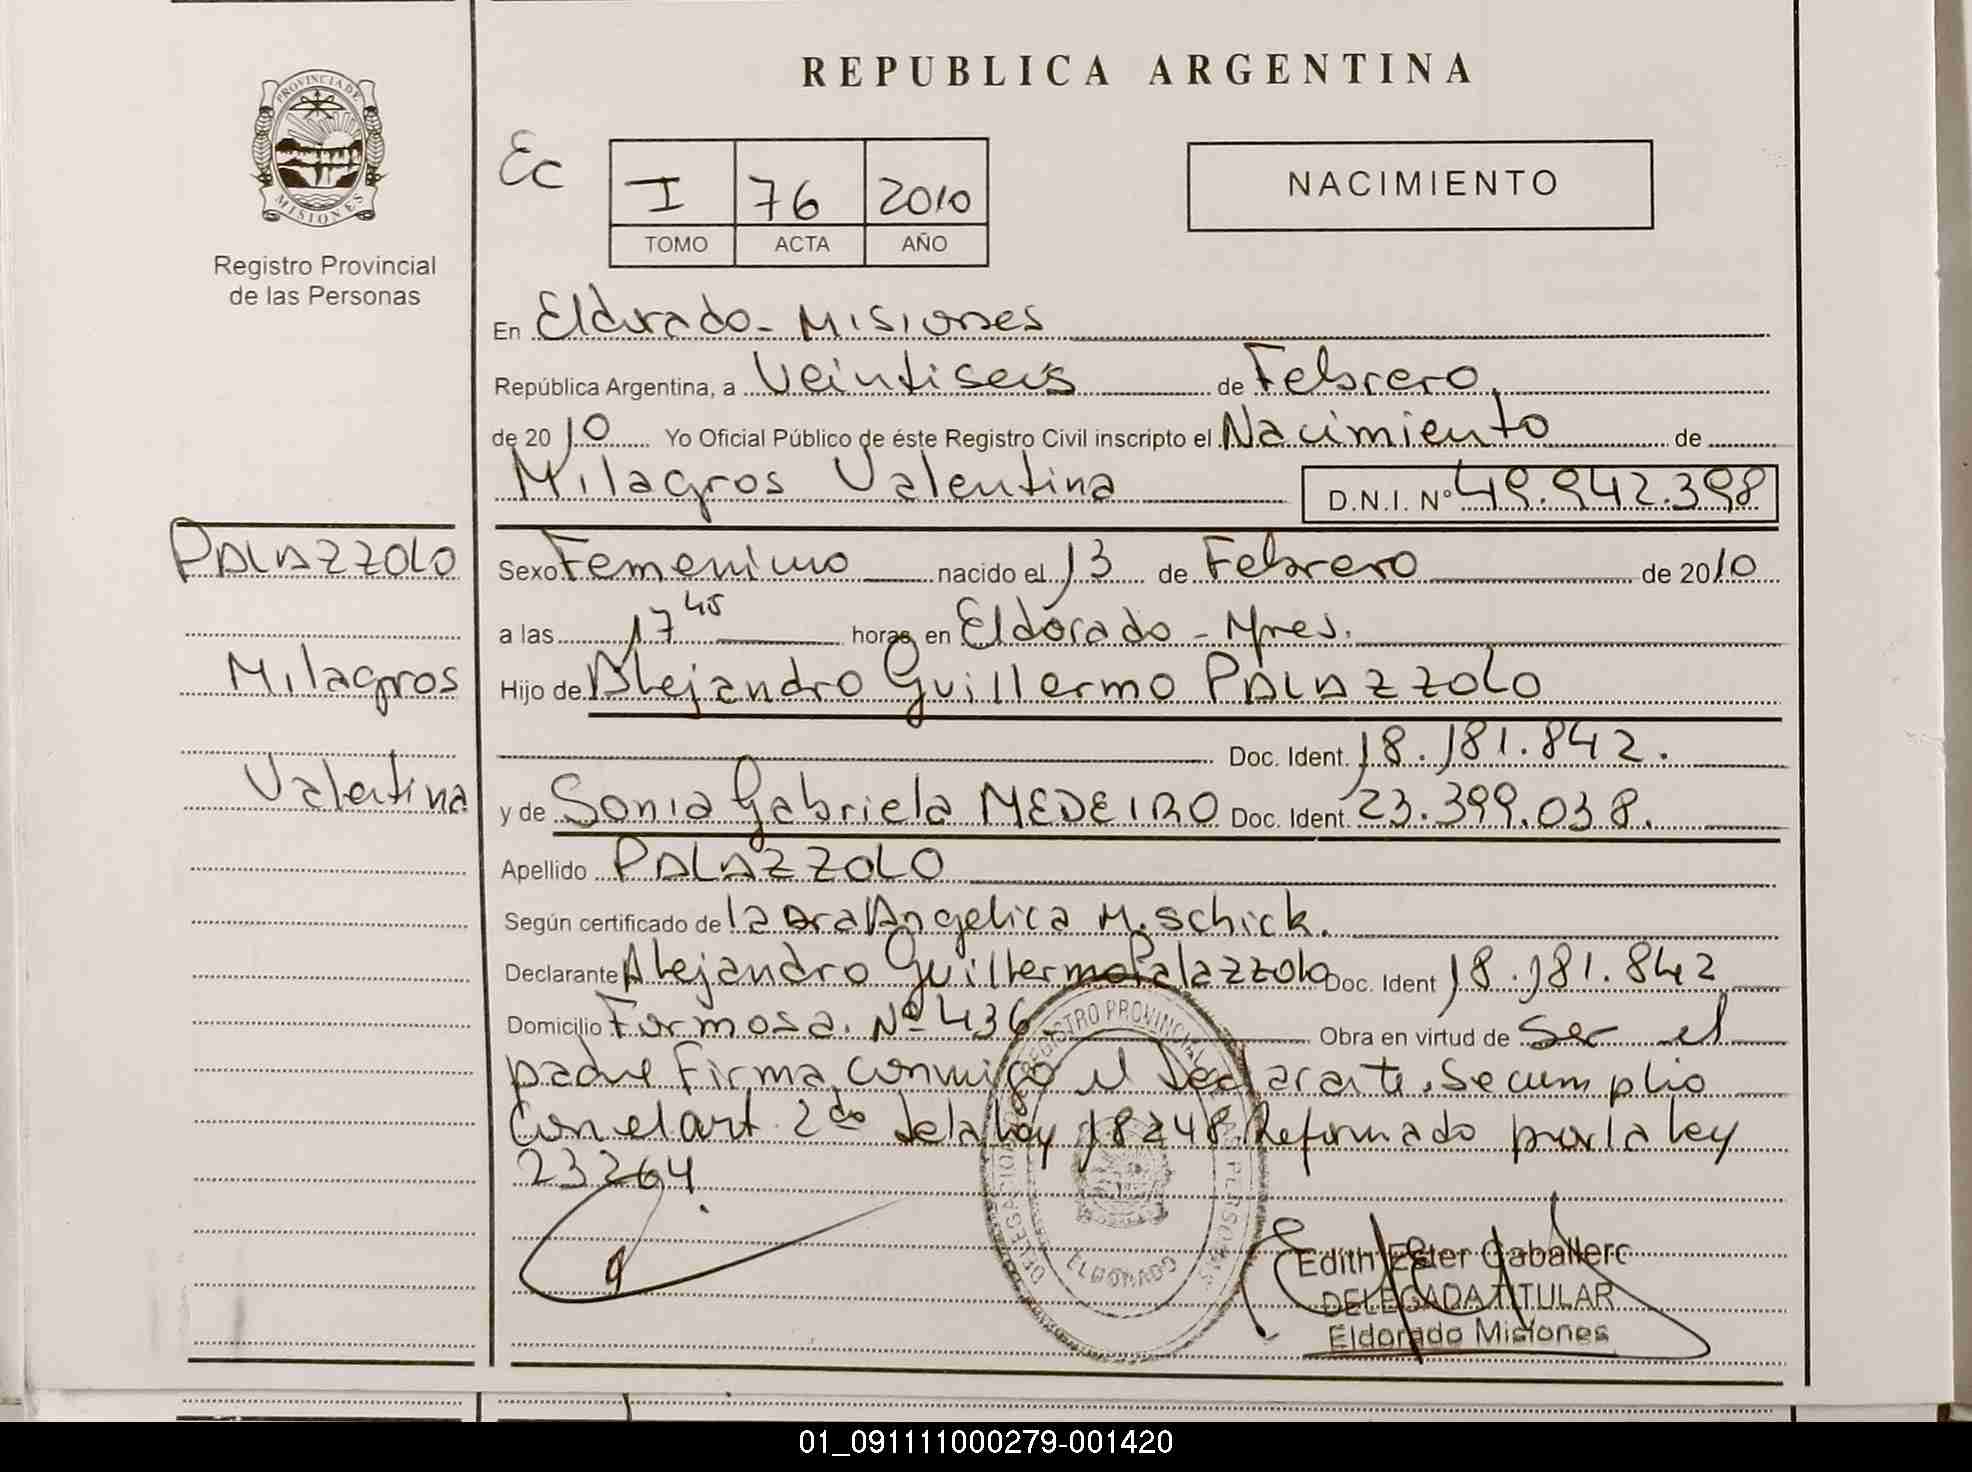 REPUBLICA ARGENTINA
PROVINCIA DE
MISIONES
Registro Provincial
de las Personas
Ec
I 76 2010
TOMO ACTA AÑO
NACIMIENTO
En Eldorado - Misiones
República Argentina, a Veintiseis de Febrero
de 2010 Yo Oficial Público de éste Registro Civil inscripto el Nacimiento de
Milagros Valentina D.N.I. Nº 49.942.398
PALAZZOLO
Milagros
Valentina
Sexo Femenino nacido el 13 de Febrero de 2010
a las 17 45 horas en Eldorado - Mnes.
Hijo de Alejandro Guillermo PALAZZOLO
Doc. Ident. 18.181.842.
y de Sonia Gabriela MEDEIRO Doc. Ident. 23.399.038.
Apellido PALAZZOLO
Según certificado de la Dra Angelica M. Schick.
Declarante Alejandro Guillermo Palazzolo Doc. Ident 18.181.842
Domicilio Formosa. Nº 436 Obra en virtud de Ser el
padre Firma conmigo el Declarante. Se cumplio
Con el art 2do de la Ley 18248 Reformado por la Ley
23264.
REGISTRO PROVINCIAL DE LAS PERSONAS
DELEGACION
ELDORADO
Edith Ester Caballero
DELEGADA TITULAR
Eldorado Misiones
01_091111000279-001420